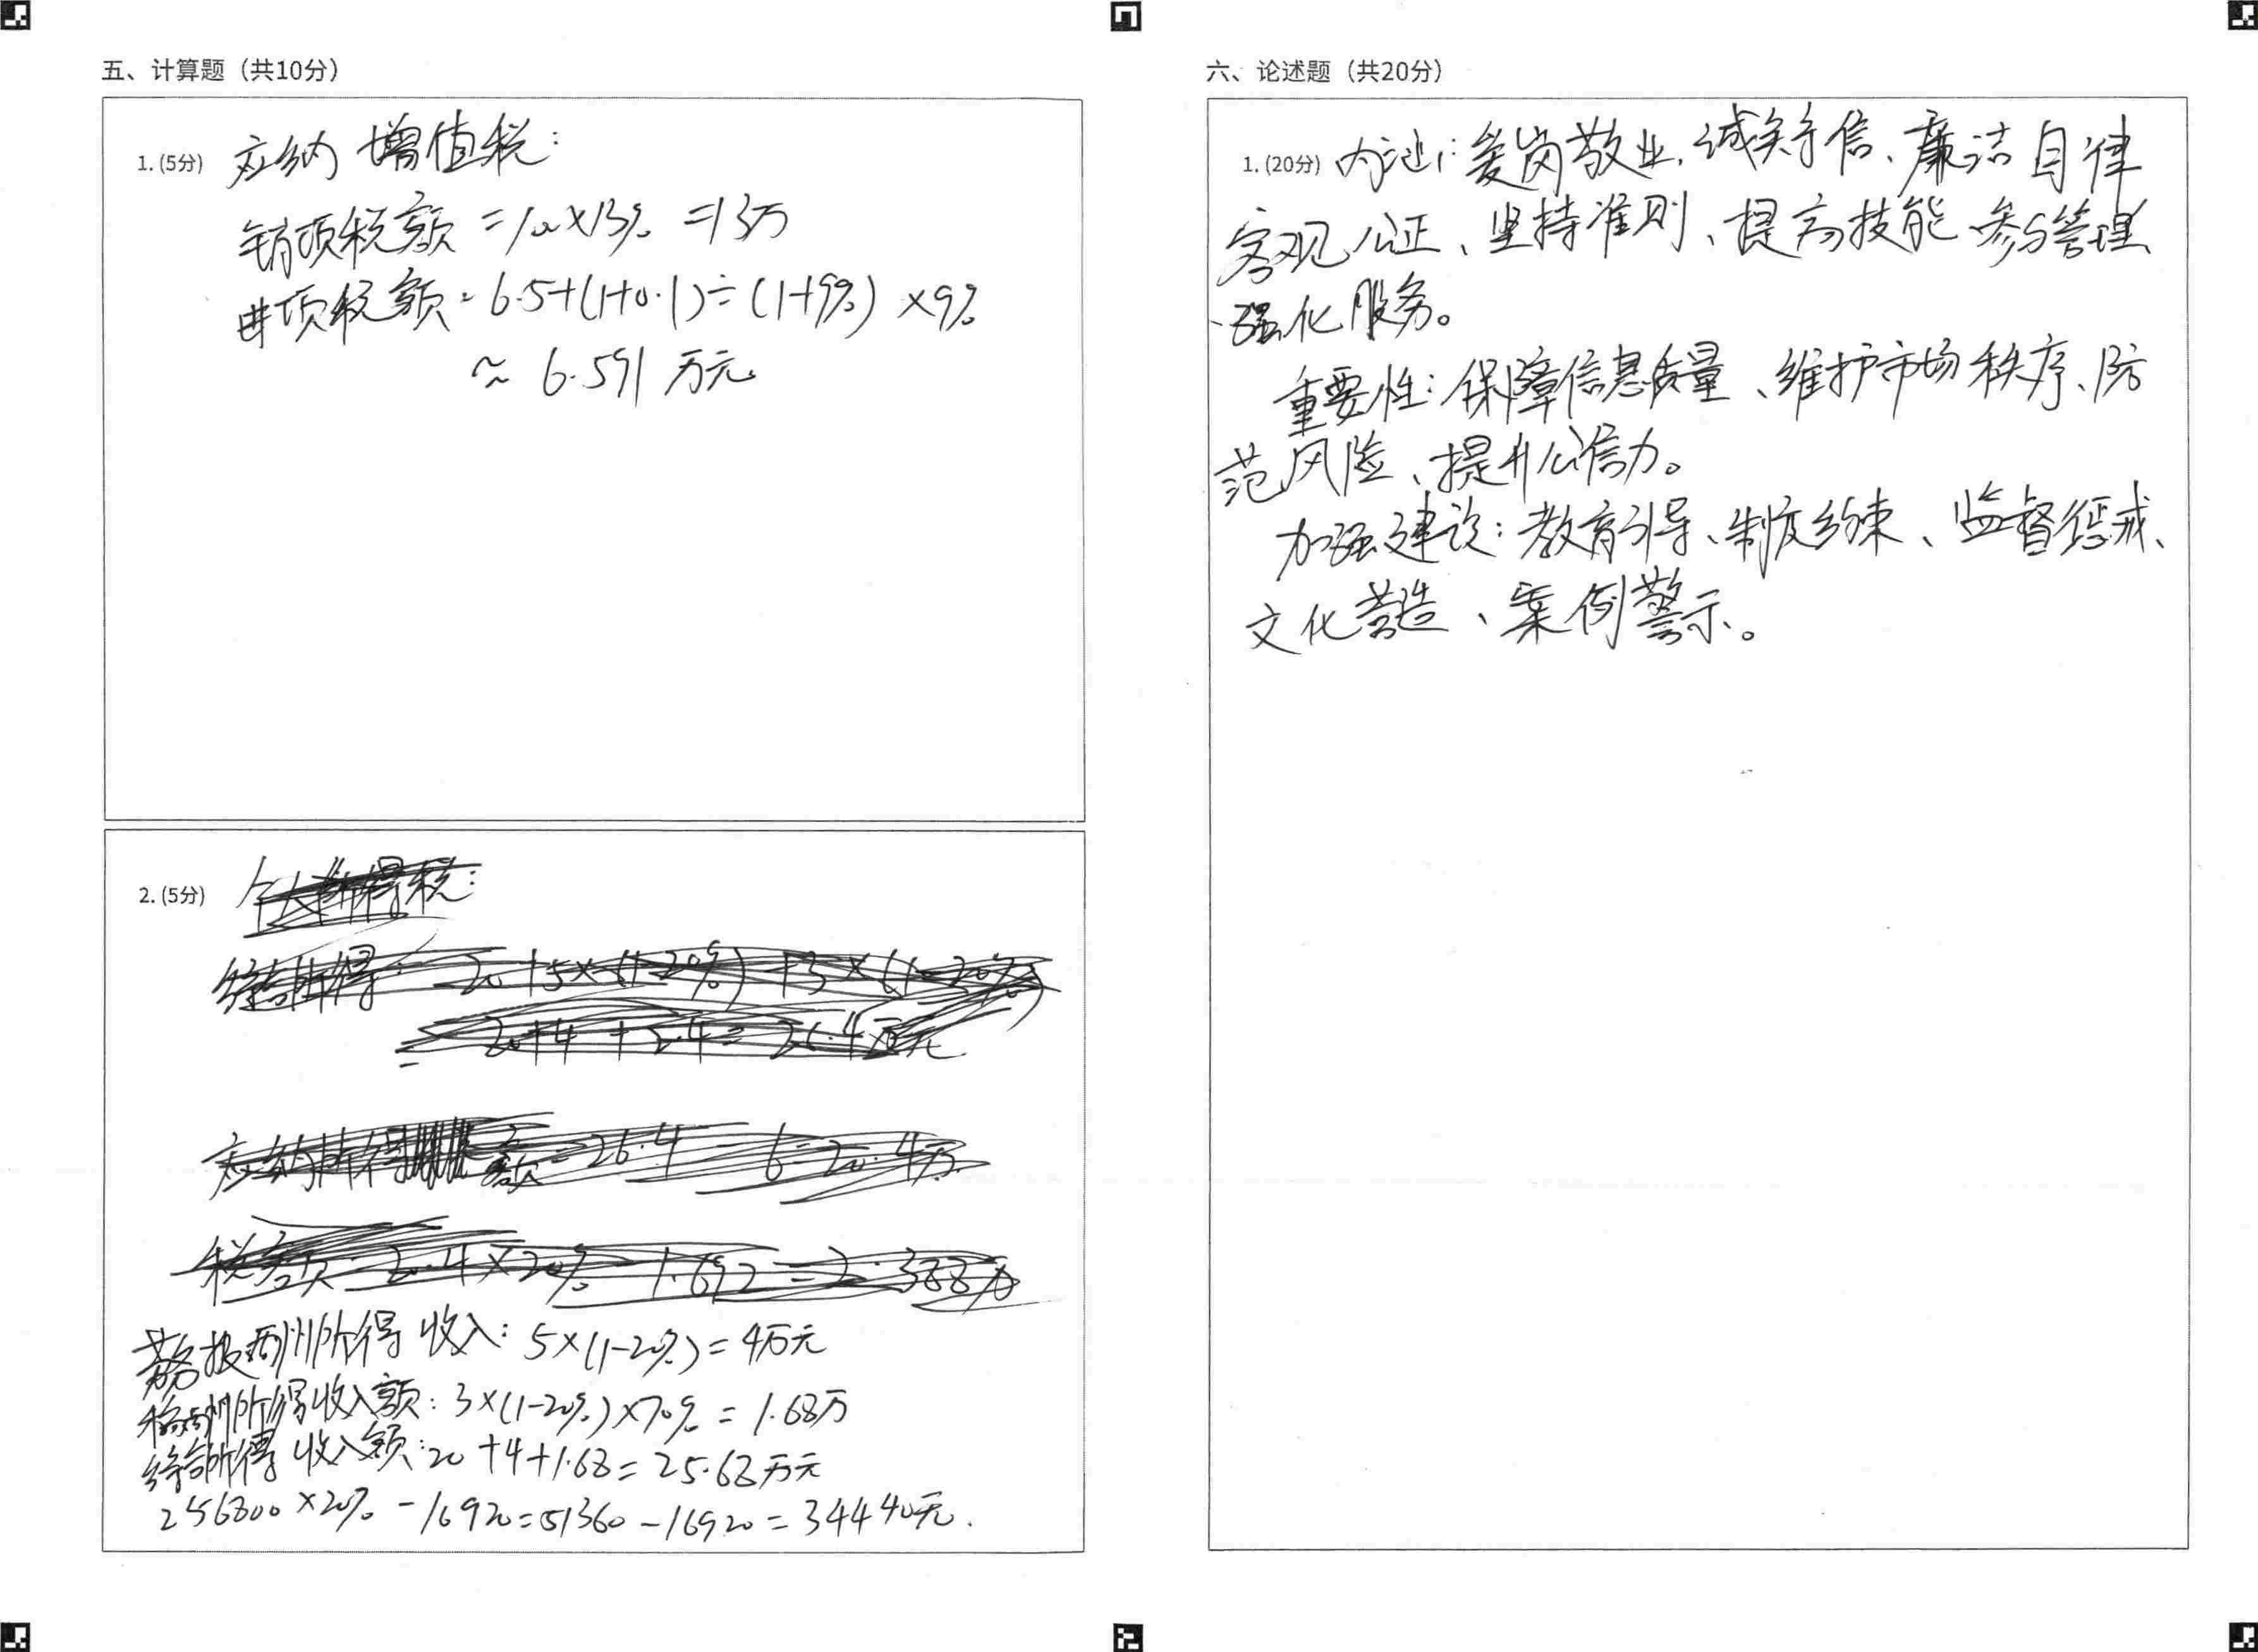 五、计算题（共10分）
1. (5分) 应纳增值税：
销项税额 =100×13% =13万
进项税额 = 6.5+(1+0.1)÷(1+9%) ×9%
≈ 6.591 万元
2. (5分) 个人所得税：
综合所得： 20+5×(1-20%)+3×(1-20%)
= 20+4+2.4= 26.4万元
应纳所得 额=26.4 - 6=20.4万
税额 20.4×20% 1.692 = 2.388万
劳务报酬所得 收入：5×(1-20%)= 4万元
稿酬所得收入额：3×(1-20%)×70% = 1.68万
综合所得 收入额：20 +4+1.68= 25.68万元
256800×20% -16920=51360 -16920= 34440元.
六、论述题（共20分）
1. (20分) 内涵：爱岗敬业、诚实守信、廉洁自律
客观公正、坚持准则、提高技能 参与管理、
强化服务。
重要性：保障信息质量、维护市场秩序、防
范风险、提升公信力。
加强建设：教育引导、制度约束、监督惩戒、
文化营造、案例警示。